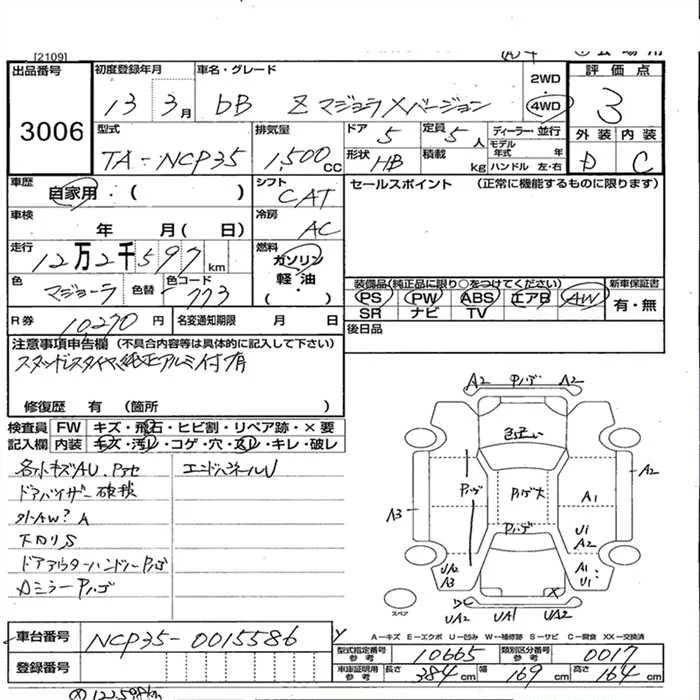 [2109]
出品番号 3006
初度登録年月 13 3月
車名・グレード bB Z マジョーラ Xバージョン
2WD 4WD
評価点 3
型式 TA-NCP35
排気量 1,500 CC
ドア 5
定員 5人
ディーラー・並行
モデル年式 年
形状 HB
積載 kg
ハンドル 左・右
外装 内装
D C
車歴 自家用・( )
シフト CAT
セールスポイント (正常に機能するものに限ります)
車検 年 月( 日)
冷房 AC
走行 12万2千597 km
燃料 ガソリン 軽油 ・( )
色 マジョーラ 色替 色コード 773
装備品(純正品に限り○をつけてください)
新車保証書
PS PW ABS エアB AW
SR ナビ TV
有・無
R券 10,270 円
名変通知期限 月 日
後日品
注意事項申告欄 (不具合内容等は具体的に記入して下さい)
スタッドレスタイヤ、純正アルミ付有
修復歴 有 (箇所 )
検査員記入欄
FW キズ・飛石・ヒビ割・リペア跡・×要
内装 キズ・汚レ・コゲ・穴・スレ・キレ・破レ
各小キズAU、
エンドパネルU
ドアバイザー破損
外AW? A
下回りS
ドアアウターハンドルハゲ
Dミラーハゲ
A2 ハゲ A2
色ちがい
ハゲ ハゲ大
A2
A3
A1
ハゲ
U1
A2
UA2
A3
A1
U1
X
スペア
UA2 UA1 UA2
A-キズ E-エクボ U-凹み W-補修跡 S-サビ C-腐食 XX-交換済
車台番号 NCP35-0015586
型式指定番号 参考 10665
類別区分番号 参考 0017
登録番号
車庫証明用 参考 長さ 384cm 幅 169cm 高さ 164cm